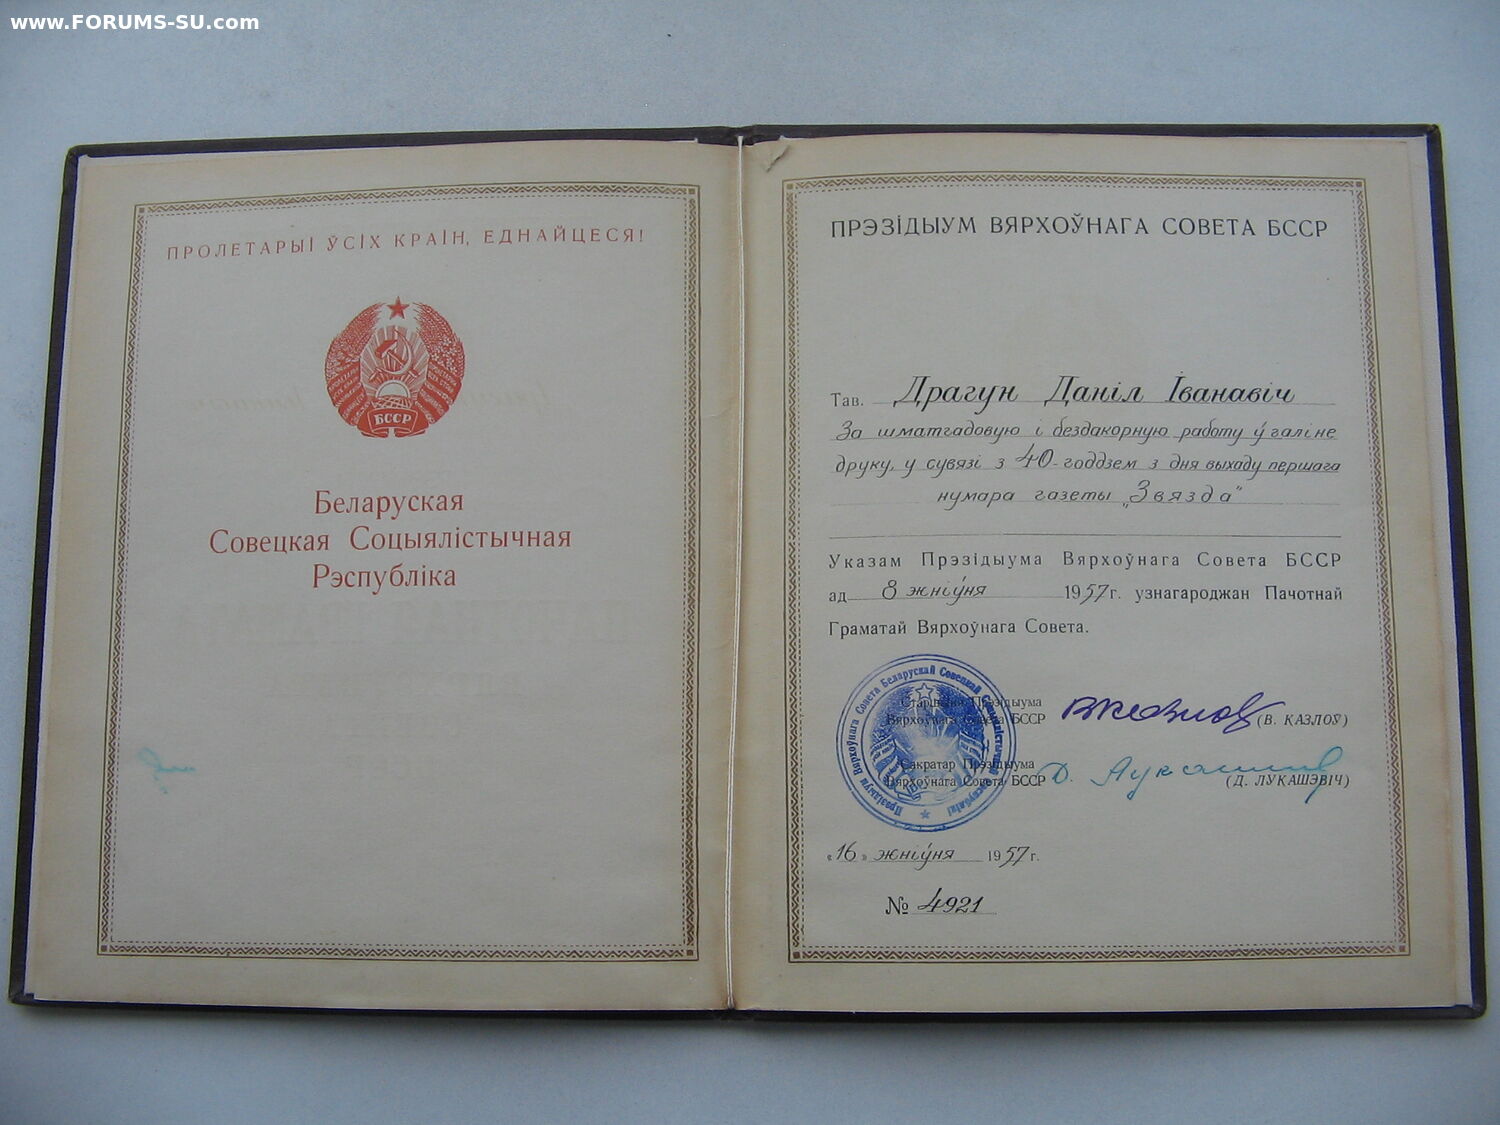 www.FORUMS-SU.com
ПРОЛЕТАРЫІ ЎСІХ КРАІН, ЕДНАЙЦЕСЯ!
БССР
Беларуская
Совецкая Соцыялістычная
Рэспубліка
ПРЭЗІДЫУМ ВЯРХОЎНАГА СОВЕТА БССР
Тав. Драгун Даніл Іванавіч
За шматгадовую і бездакорную работу ў галіне
друку, у сувязі з 40-годдзем з дня выхаду першага
нумара газеты „Звязда"
Указам Прэзідыума Вярхоўнага Совета БССР
ад 8 жніўня 1957 г. узнагароджан Пачотнай
Граматай Вярхоўнага Совета.
Старшыня Прэзідыума
Вярхоўнага Совета БССР (В. КАЗЛОЎ)
Сакратар Прэзідыума
Вярхоўнага Совета БССР Д. Лукашэвіч (Д. ЛУКАШЭВІЧ)
Прэзідыум Вярхоўнага Совета Беларускай Совецкай Соцыялістычнай Рэспублікі
«16» жніўня 1957 г.
№ 4921